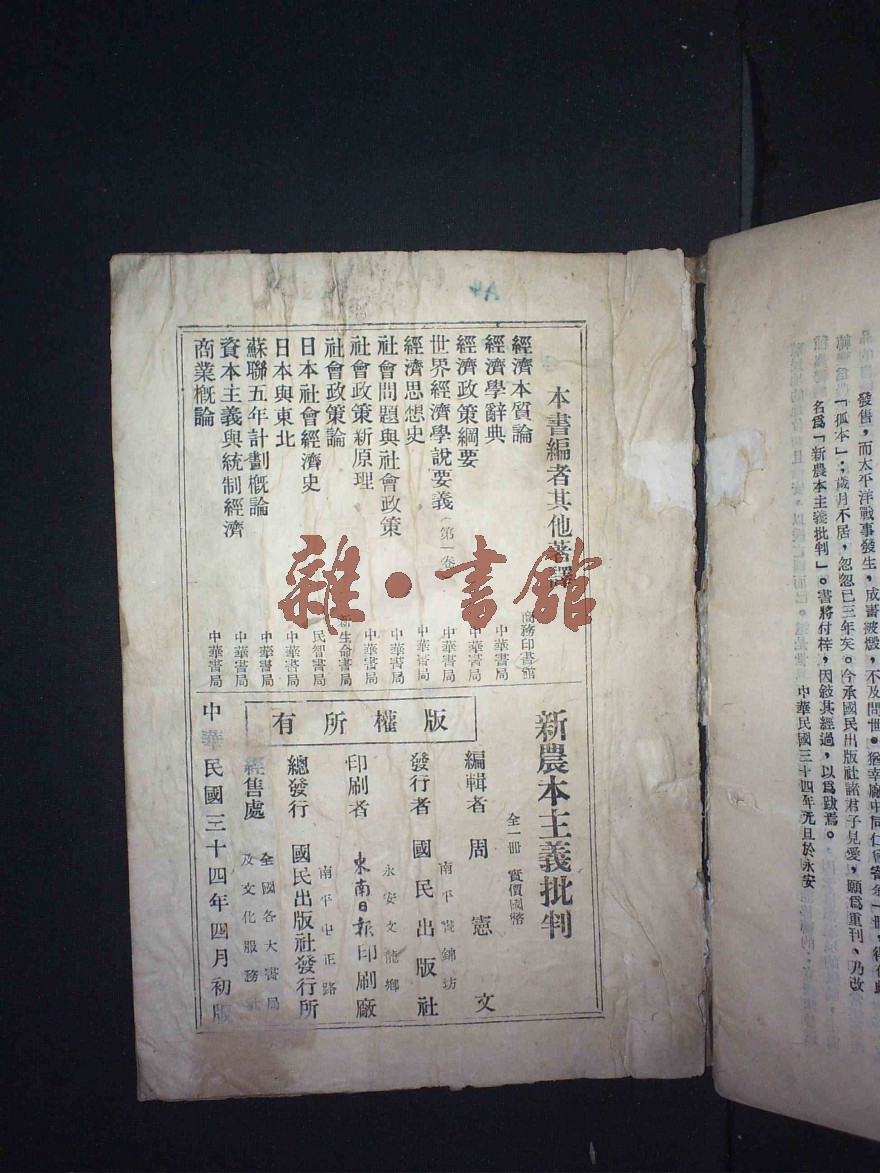 發售，而太平洋戰事發生，成書被燬，不及問世。
「孤本」；歲月不居，忽忽已三年矣。今承國民出版社諸君子見愛，願爲重刊、乃改
名爲「新農本主義批判」。書將付梓，因敍其經過，以爲敍焉。
中華民國三十四年元旦於永安
本書編者其他著譯
經濟本質論 商務印書館
經濟學辭典 中華書局
經濟政策綱要 中華書局
世界經濟學說要義（第一卷） 中華書局
經濟思想史 中華書局
社會問題與社會政策 中華書局
社會政策新原理 中華書局
社會政策論 新生命書局
日本社會經濟史 民智書局
日本與東北 中華書局
蘇聯五年計劃概論 中華書局
資本主義與統制經濟 中華書局
商業概論 中華書局
版權所有
新農本主義批判
全一冊 實價國幣
編輯者 周憲文
南平 錦坊
發行者 國民出版社
永安文龍鄉
印刷者 東南日報印刷廠
南平中正路
總發行 國民出版社發行所
經售處 全國各大書局
及文化服務社
中華民國三十四年四月初版
雜·書館
A4